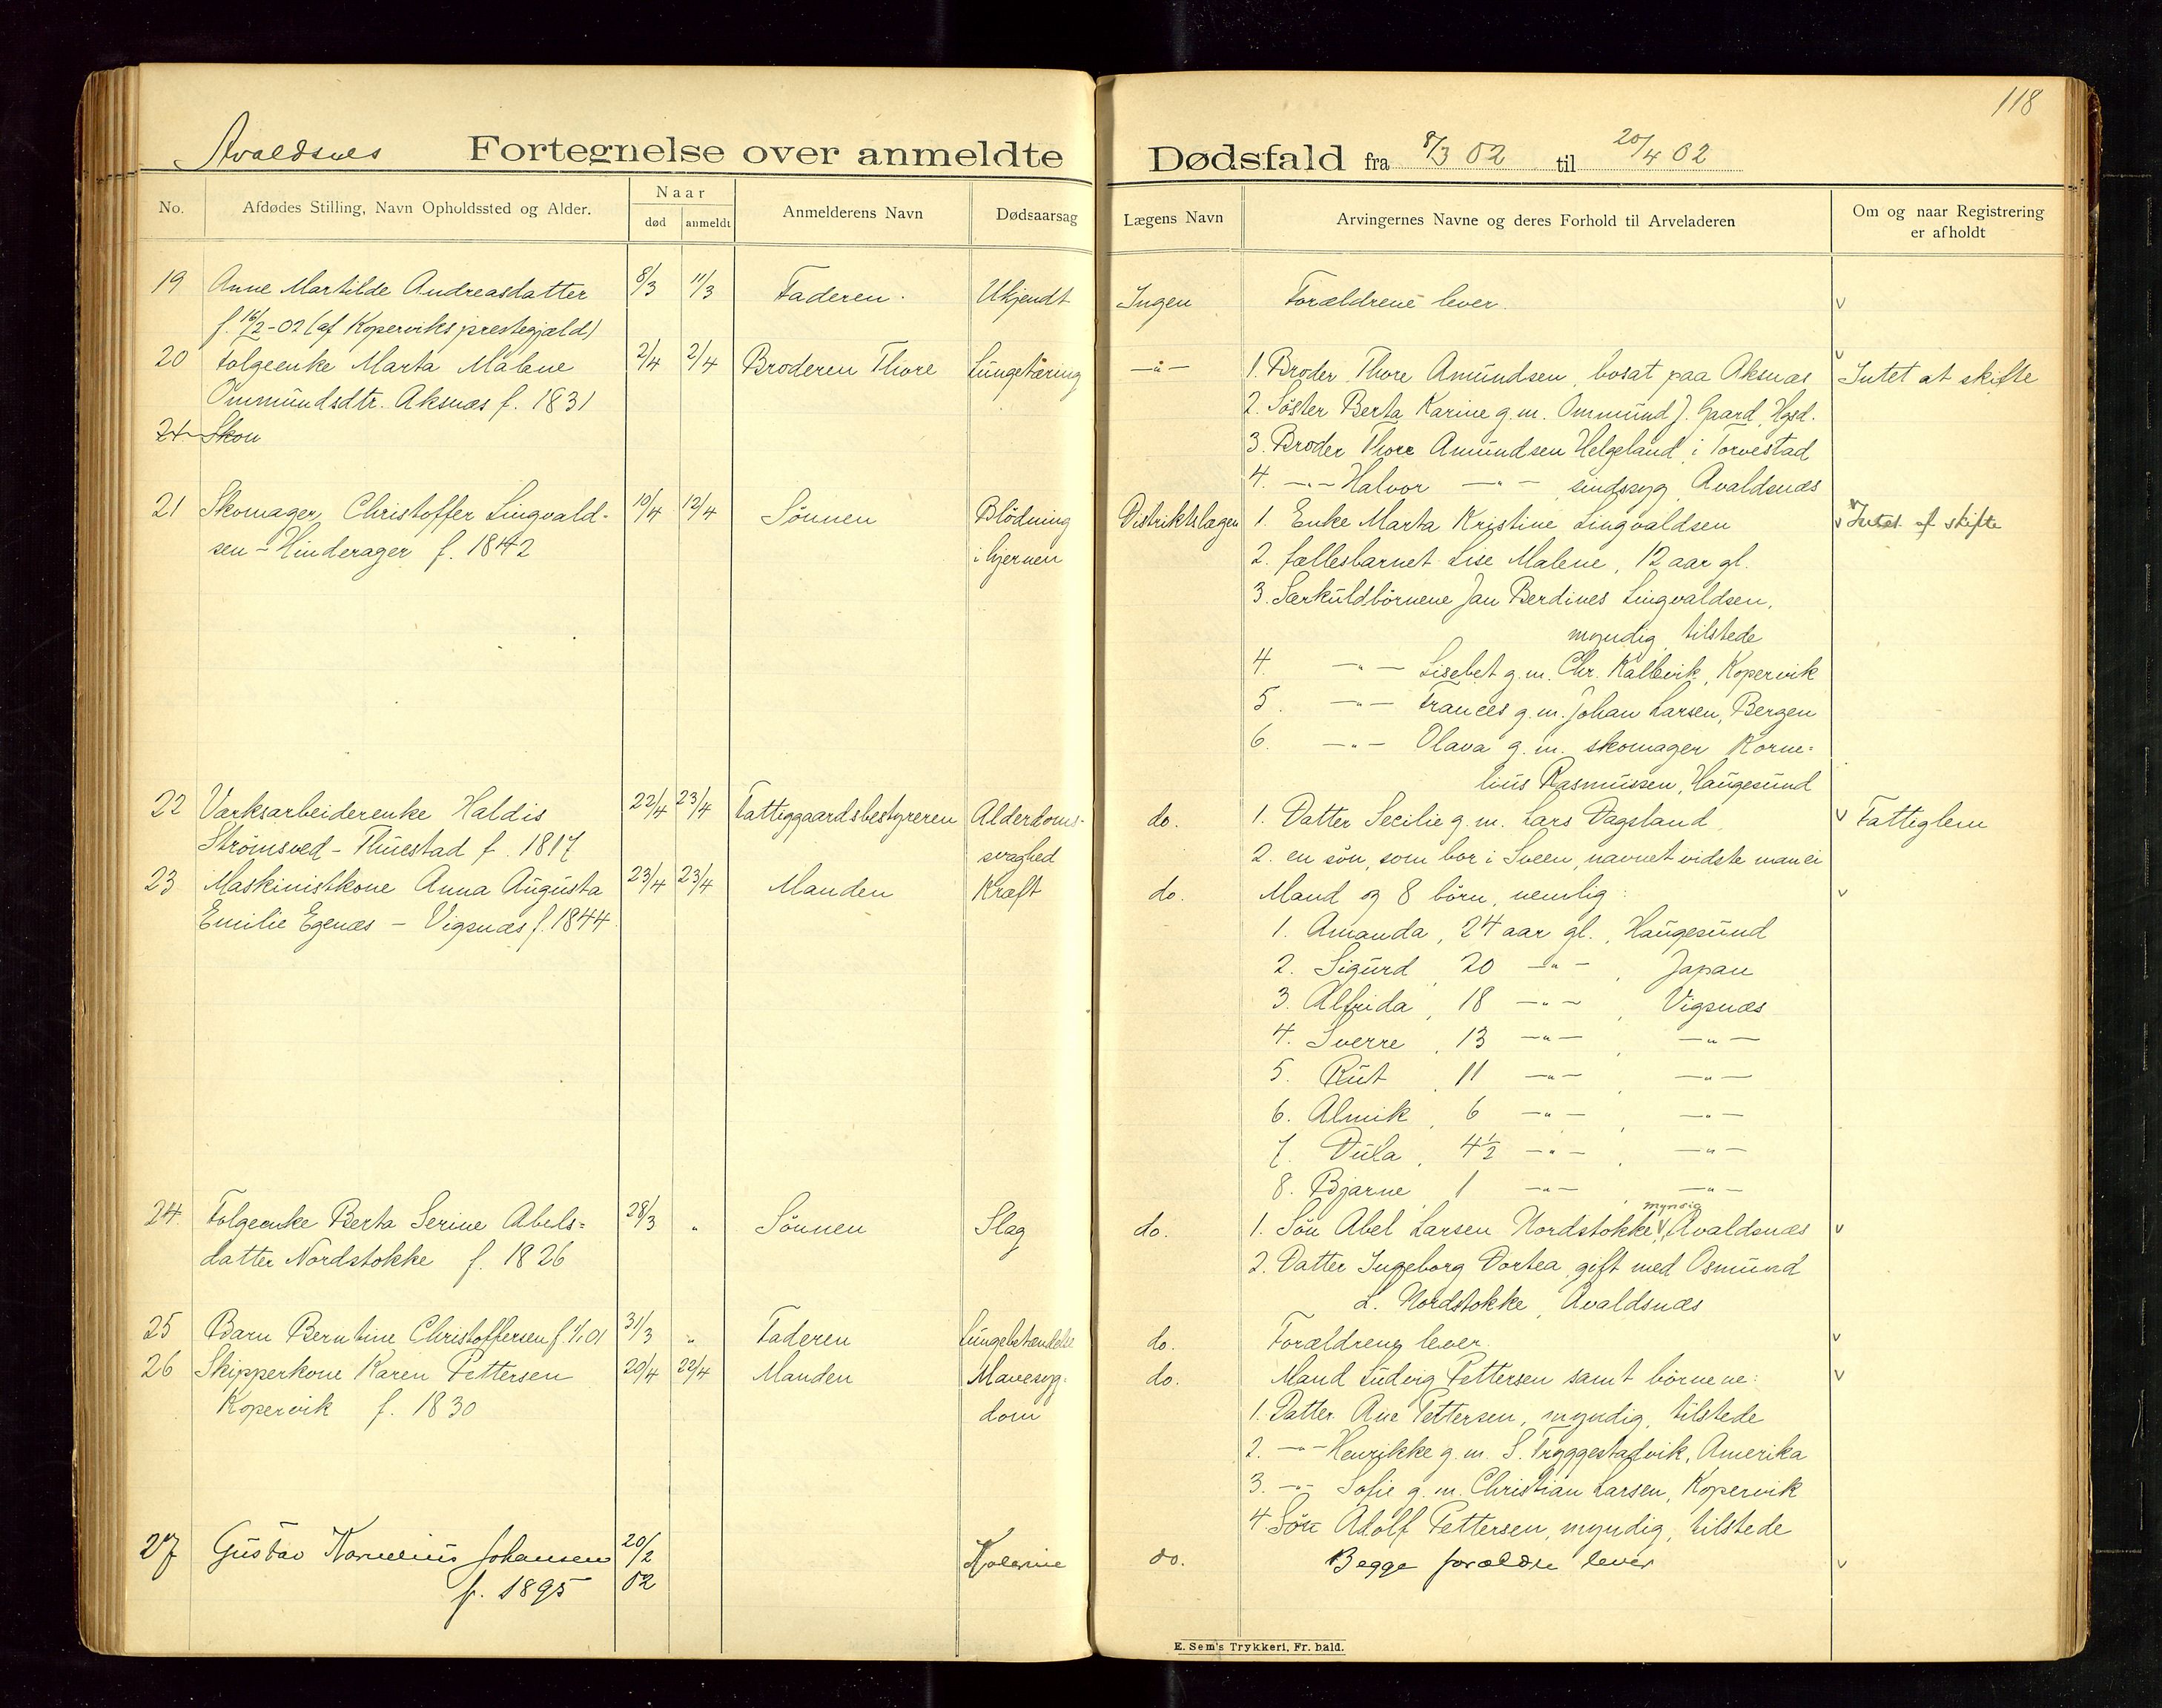 118
Avaldsnes Fortegnelse over anmeldte Dødsfald fra 8/3 02 til 20/4 02
No. Afdødes Stilling, Navn Opholdssted og Alder. Naar død anmeldt Anmelderens Navn Dødsaarsag Lægens Navn Arvingernes Navne og deres Forhold til Arveladeren Om og naar Registrering er afholdt
19 Anne Martilde Andreasdatter 8/3 11/3 Faderen. Ukjendt Ingen Forældrene lever. v
f. 16/2-02 (af Koperviks prestegjæld)
20 Folgeenke Marta Malene 2/4 2/4 Broderen Thore Lungetæring —"— 1. Broder Thore Amundsen, bosat paa Aksnæs v Intet at skifte
Ommundsdtr. Aksnæs f. 1831 2. Söster Berta Karine g.m. Ommund J. Gaard, Hgsd.
21 Skou 3. Broder Thore Amundsen Helgeland i Torvestad
4. —"— Halvor —"— sindssyg Avaldsnæs
21 Skomager Christoffer Lingvald- 10/4 12/4 Sönnen Blödning Distriktslægen 1. Enke Marta Kristine Lingvaldsen v Intet at skifte
sen - Hinderager f. 1842 i hjernen 2. fællesbarnet Lise Malene, 12 aar gl.
3. Særkuldbörnene Jan Berdines Lingvaldsen,
myndig, tilstede
4. —"— Lisebet g.m. Chr. Kallevik, Kopervik
5. —"— Frances g.m. Johan Larsen, Bergen
6. —"— Olava g.m. skomager Korne-
lius Rasmussen, Haugesund
22 Værksarbeiderenke Haldis 22/4 23/4 Fattiggaardsbestyreren Alderdoms- do. 1. Datter Secilie g.m. Lars Dagsland v Fattiglem
Strömsved - Thuestad f. 1817 svaghed 2. en sön, som bor i Sveen, navnet vidste man ei
23 Maskinistkone Anna Augusta 23/4 23/4 Manden Kræft do. Mand og 8 börn, nemlig: v
Emilie Egenæs - Vigsnæs f. 1844. 1. Amanda, 24 aar gl., Haugesund
2. Sigurd, 20 —"—, Japan
3. Alfrida, 18 —"—, Vigsnæs
4. Sverre, 13 —"—, —"—
5. Rut, 11 —"—, —"—
6. Almik, 6 —"—, —"—
7. Dula, 4½ —"—, —"—
8. Bjarne, 1 —"—, —"—
24. Folgeenke Berta Serine Abels- 28/3 " Sönnen Slag do. 1. Sön Abel Larsen Nordstokke, myndig, Avaldsnæs v
datter Nordstokke f. 1826 2. Datter Ingeborg Dortea, gift med Osmund
L. Nordstokke, Avaldsnæs
25 Barn Berntine Christoffersen f. 1/1 01 31/3 " Faderen Lungebetændelse do. Forældrene lever. v
26 Skipperkone Karen Pettersen 20/4 22/4 Manden Mavesyg- do. Mand Ludvig Pettersen samt börnene: v
Kopervik f. 1830 dom 1. Datter Ane Pettersen, myndig, tilstede
2. —"— Henrikke g.m. S. Tryggestadvik, Amerika
3. —"— Sofie g.m. Christian Larsen, Kopervik
4 Sön Adolf Pettersen, myndig, tilstede
27 Gustav Kornelius Johansen 20/2 02 Kolerine do. Begge forældre lever v
f. 1895
E. Sem's Trykkeri, Fr. hald.